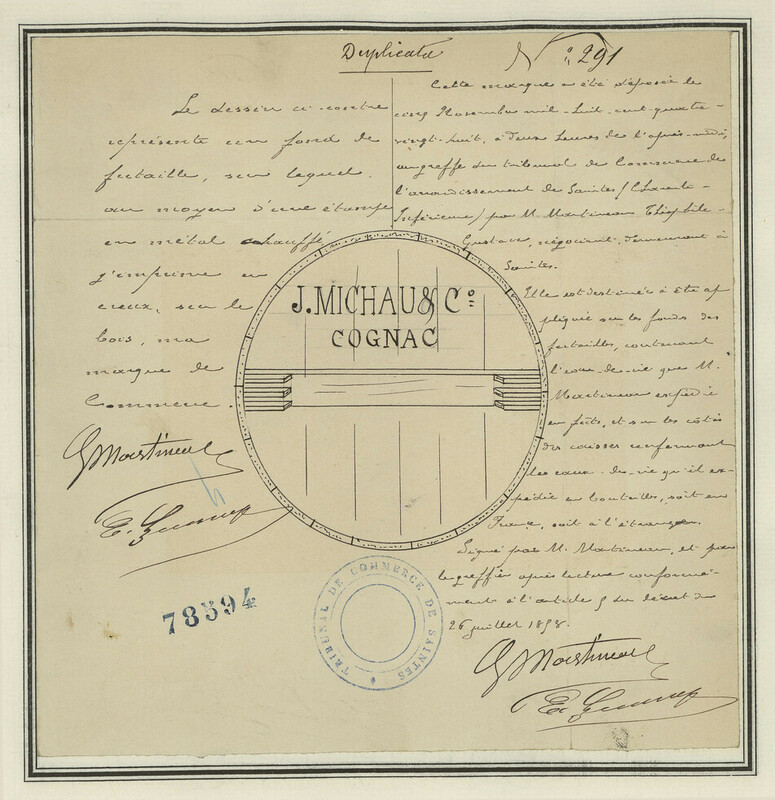 Duplicata
N° 291
Le dessin ci-contre
représente un fond de
futaille, sur lequel
au moyen d'une étampe
en métal chauffé
j'imprime en
creux, sur le
bois, ma
marque de
Commerce.
G Martineau
78594
Cette marque a été déposée le
cinq Novembre mil-huit-cent-quatre-
vingt-huit, à deux heures de l'après-midi,
au greffe du tribunal de Commerce de
l'arrondissement de Saintes (Charente-
Inférieure) par M. Martineau Théophile-
Gustave, négociant, demeurant à
Saintes.
Elle est destinée à être ap
pliquée sur les fonds des
futailles, contenant
l'eau-de-vie que M.
Martineau expédie
en fûts, et sur les côtés
des caisses renfermant
les eaux-de-vie qu'il ex-
pédie en bouteilles, soit en
France, soit à l'étranger.
Signé par M. Martineau, et par
le greffier après lecture conformé-
ment à l'article 5 du décret du
26 juillet 1858.
G Martineau
J. MICHAU & Co
COGNAC
TRIBUNAL DE COMMERCE DE SAINTES